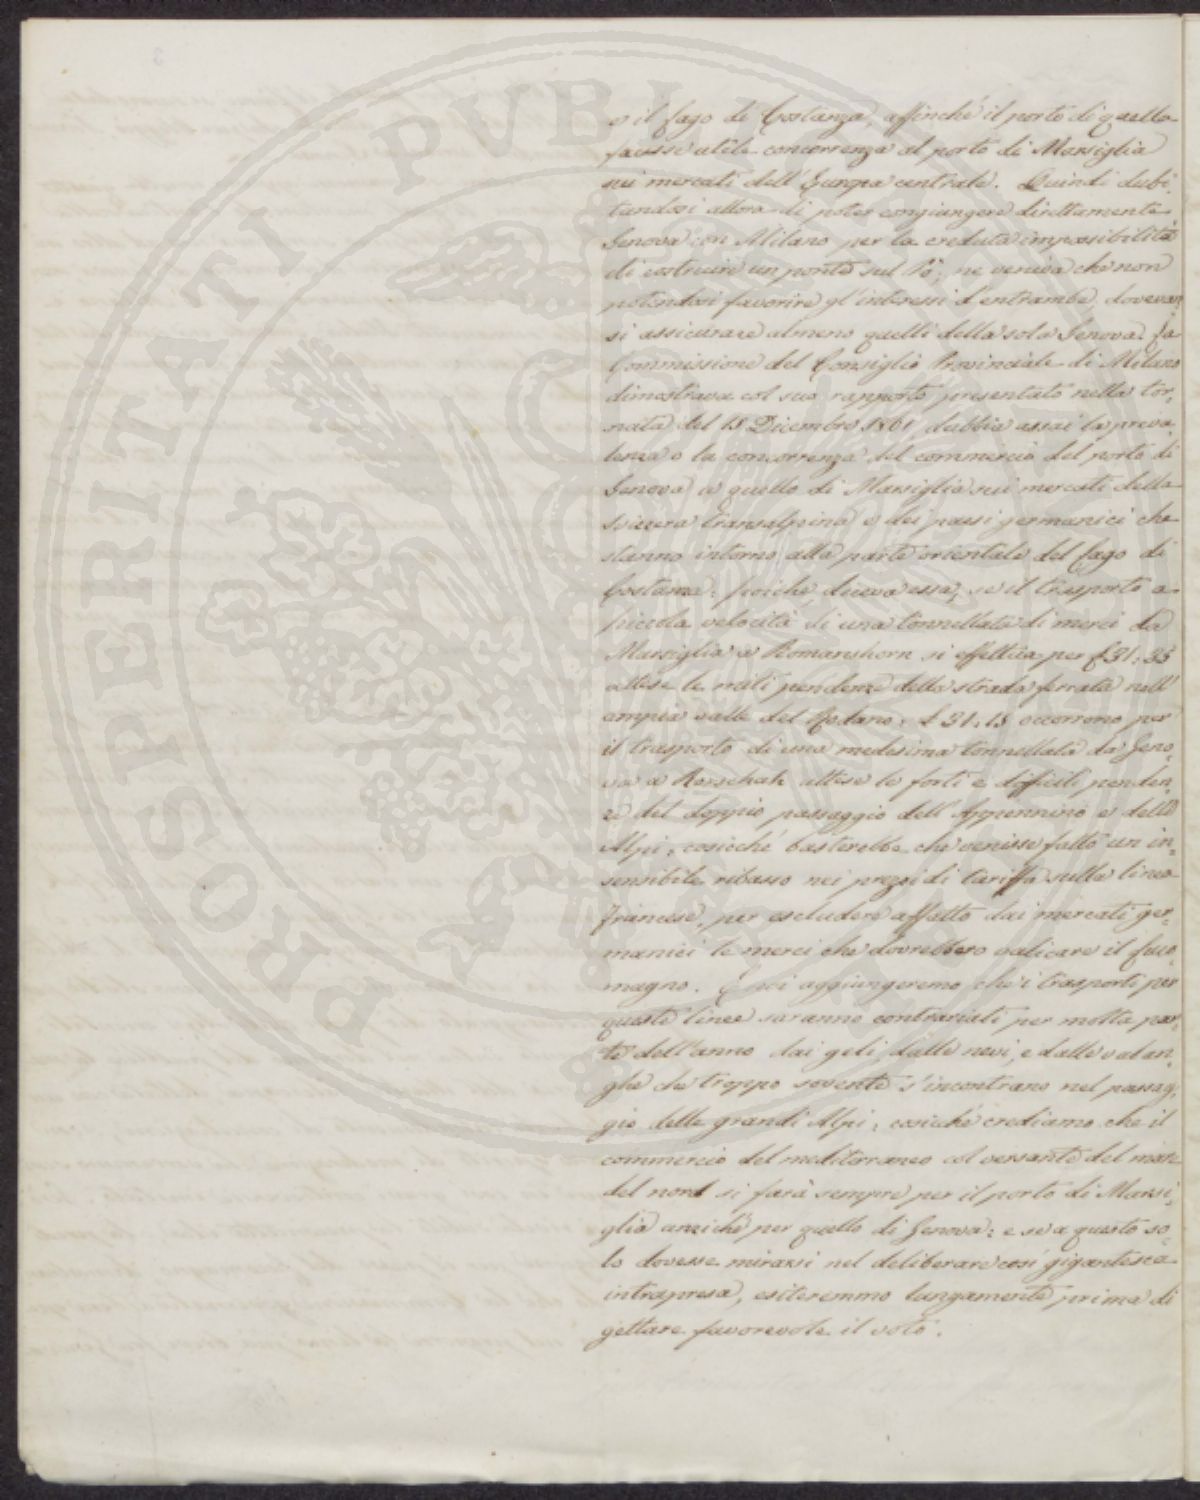 e il Lago di Costanza, affinchè il porto di quella
facesse utile concorrenza al porto di Marsiglia
sui mercati dell'Europa centrale. Quindi dubi-
tandosi allora di poter congiungere direttamente
Genova con Milano per la creduta impossibilità
di costruire un ponte sul Pò, ne veniva che non
potendosi favorire gl'interessi d'entrambe, dovevan-
si assicurare almeno quelli della sola Genova. La
Commissione del Consiglio Provinciale di Milano
dimostrava col suo rapporto presentato nella tor-
nata del 15 Dicembre 1861, dubbia assai la preva-
lenza o la concorrenza del commercio del porto di
Genova a quello di Marsiglia sui mercati della
Svizzera transalpina e dei paesi germanici che
stanno intorno alla parte orientale del Lago di
Costanza: poichè, diceva essa, se il trasporto a
piccola velocità di una tonnellata di merci da
Marsiglia a Romanshorn si effettua per £ 31,35
attese le miti pendenze della strada ferrata nell'
ampia valle del Rodano, £ 31,15 occorrono per
il trasporto di una medesima tonnellata da Geno-
va a Rorschah attese le forti e difficili penden-
ze del doppio passaggio dell'Appennino e delle
Alpi; cosicchè basterebbe che venisse fatto un in-
sensibile ribasso nei prezzi di tariffa sulla linea
francese, per escludere affatto dai mercati ger-
manici le merci che dovrebbero valicare il Luco-
magno. E noi aggiungeremo che i trasporti per
queste linee saranno contrariati per molta par-
te dell'anno dai geli, dalle nevi, e dalle valan-
ghe che troppo sovente s'incontrano nel passag-
gio delle grandi Alpi; cosichè crediamo che il
commercio del mediterraneo col versante del mare
del nord si farà sempre per il porto di Marsi-
glia anzichè per quello di Genova: e se a questo so-
lo dovesse mirarsi nel deliberare così gigantesca
intrapresa, esiteremmo lungamente prima di
gettare favorevole il voto.
PROSPERITATI PVBLICAE